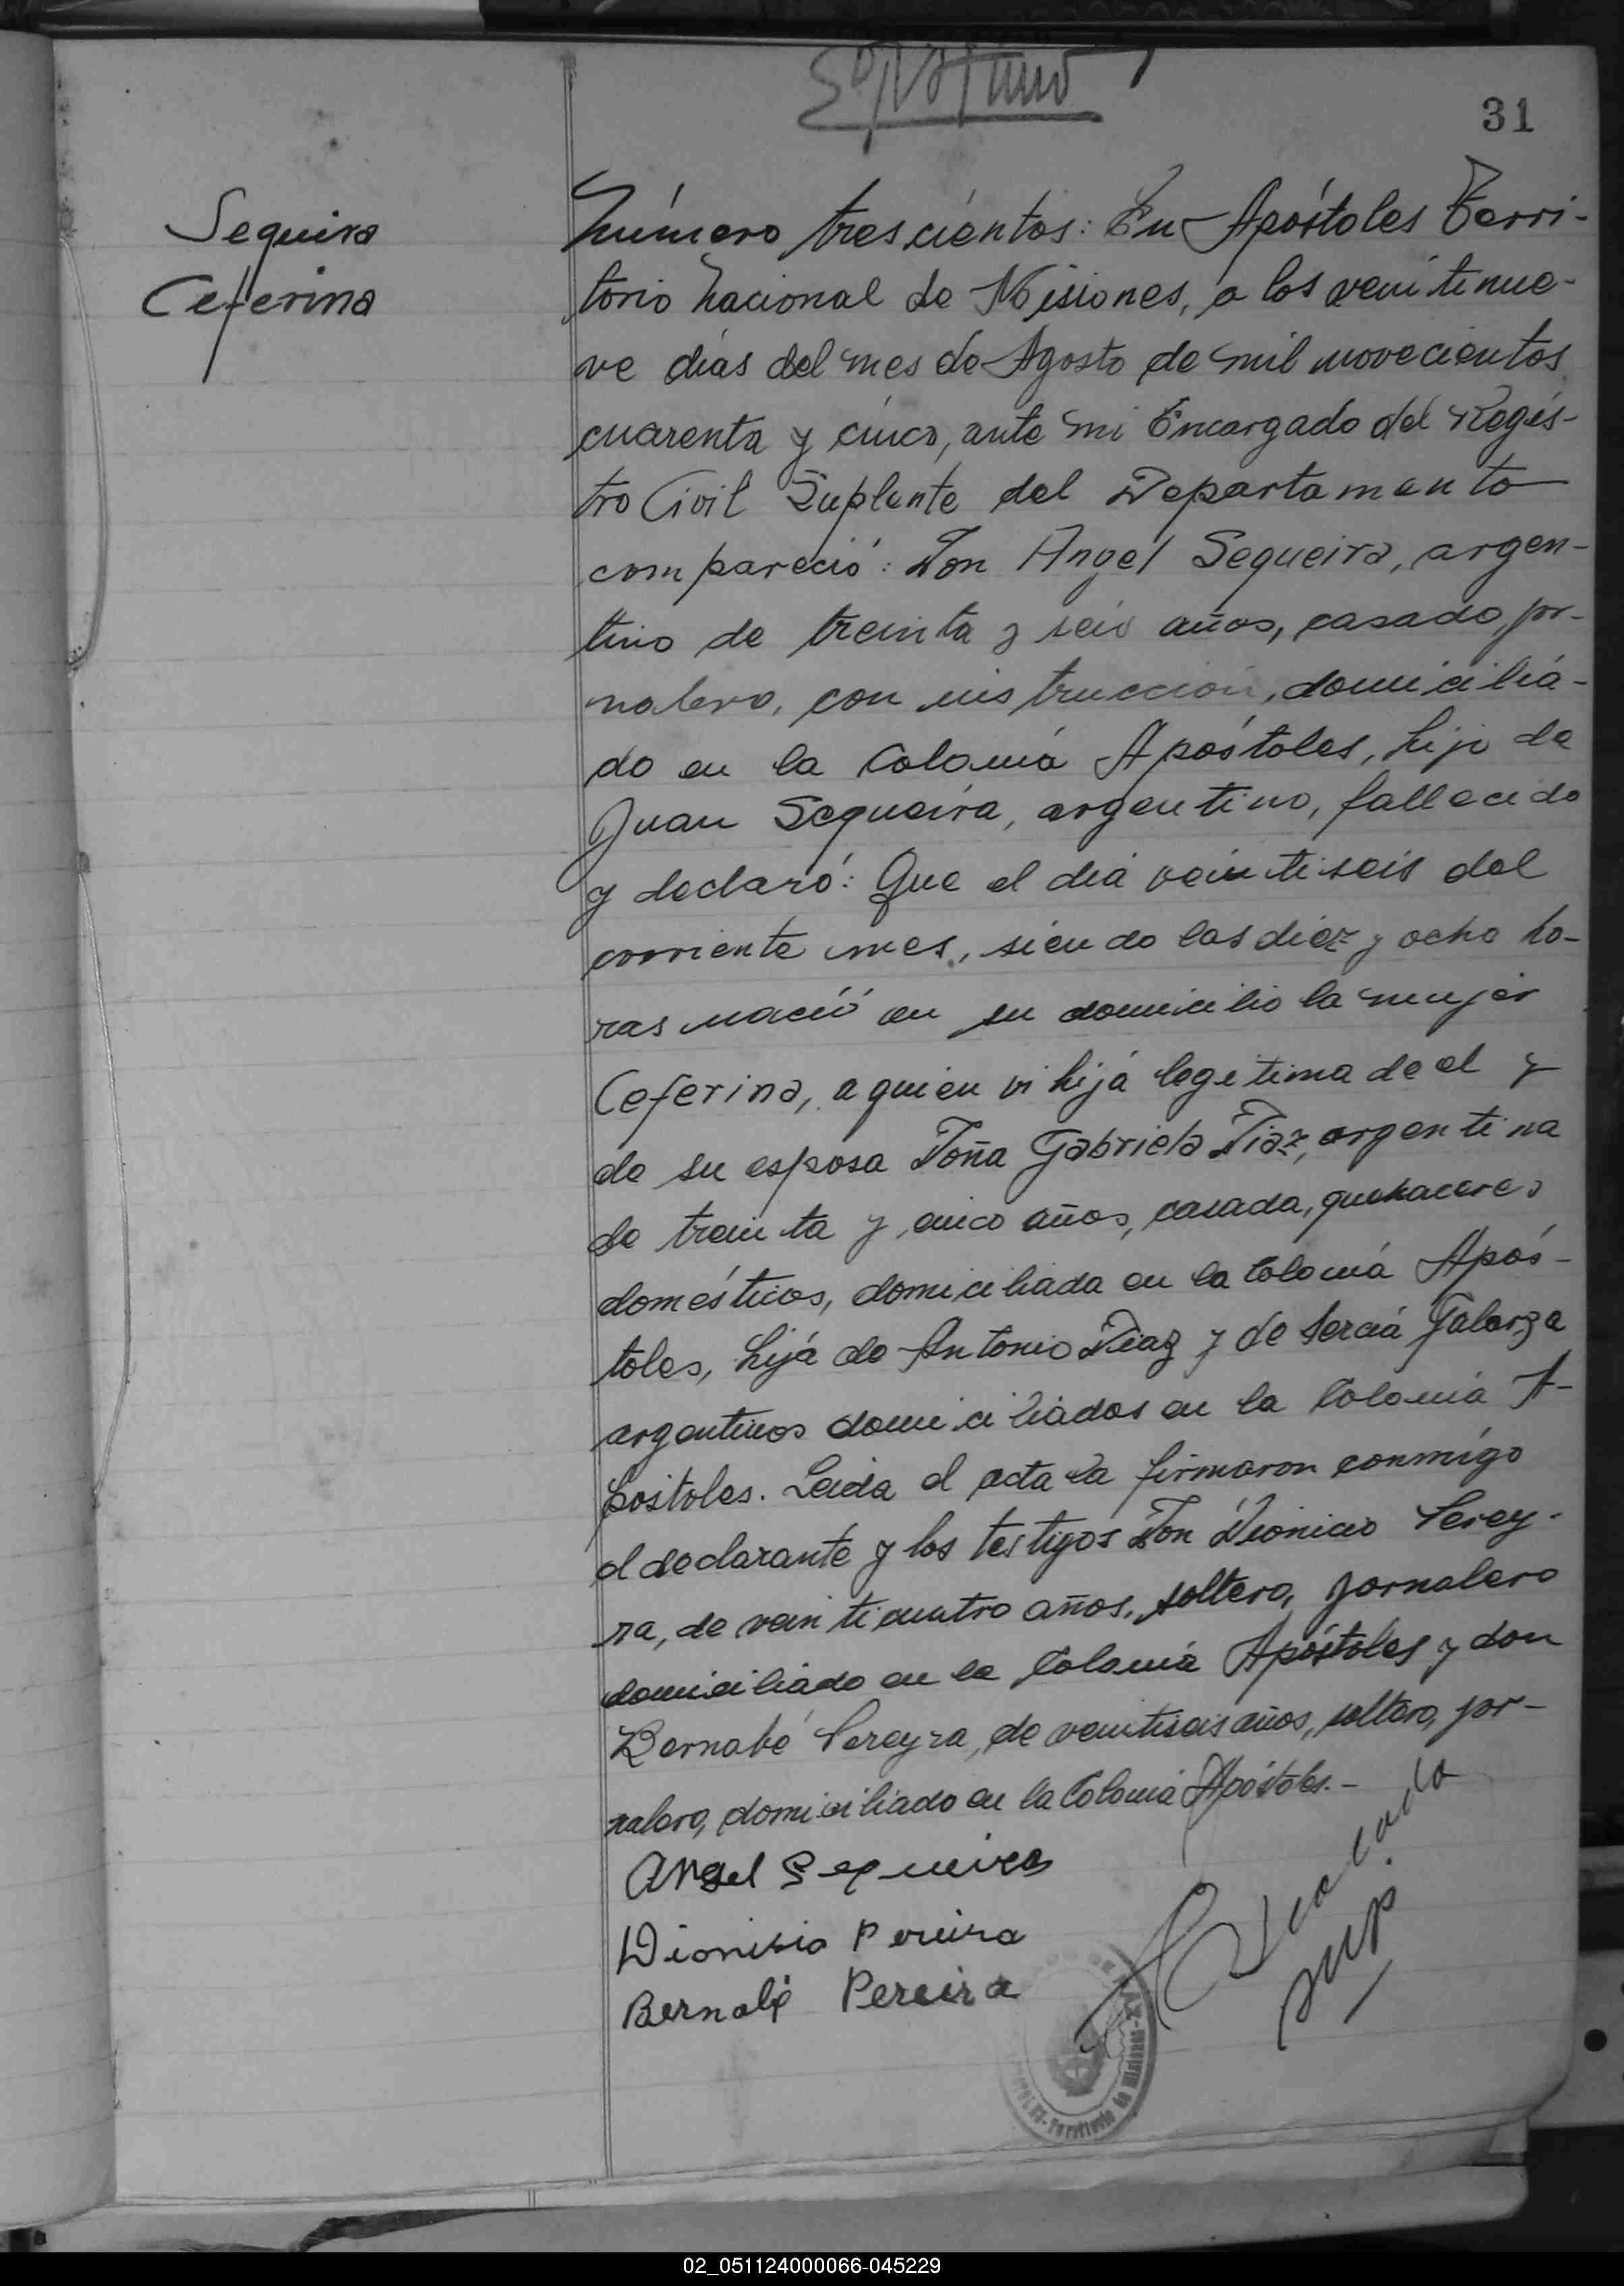 31
Sequira
Ceferina
Número trescientos: En Apóstoles Terri-
torio Nacional de Misiones, a los veintinue-
ve días del mes de Agosto de mil novecientos
cuarenta y cinco, ante mi Encargado del Regís-
tro Civil Suplente del Departamento
compareció: Don Angel Sequeira, argen-
tino de treinta y seis años, casado, jor-
nalero, con instrucción, domicilia-
do en la Colonia Apóstoles, hijo de
Juan Sequeira, argentino, fallecido
y declaró: Que el día veintiseis del
corriente mes, siendo las diez y ocho ho-
ras nació en su domicilio la mujer
Ceferina, a quien vi hija legitima de el y
de su esposa Doña Gabriela Diaz, argentina
de treinta y cinco años, casada, quehaceres
domésticos, domiciliada en la Colonia Após-
toles, hija de Antonio Diaz y de Galarza
argentinos domiciliados en la Colonia A-
postoles. Leida el acta la firmaron conmígo
el declarante y los testigos Don Dionicio Perey-
ra, de veinticuatro años, soltero, jornalero
domiciliado en la Colonia Apóstoles y don
Bernabé Pereyra, de veintiseis años, soltero, jor-
nalero, domiciliado en la Colonia Apóstoles.-
Angel Sequeira
Dionisio Pereira
Bernabé Pereira
sup
Territorio de Misiones
02_051124000066-045229